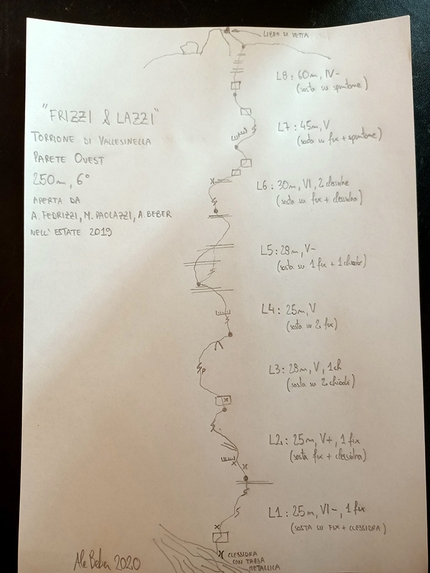 LIBRO DI VETTA
"FRIZZI & LAZZI"
TORRIONE DI VALLESINELLA
PARETE OUEST
250m, 6°
APERTA DA
A. FEDRIZZI, M. PAOLAZZI, A. BEBER
NELL'ESTATE 2019
L8: 60m, IV-
(sosta su spuntone)
L7: 45m, V
(sosta su fix + spuntone)
L6: 30m, VI, 2 clessidre
(sosta su fix + clessidra)
L5: 28m, V-
(sosta su 1 fix + 1 chiodo)
L4: 25m, V
(sosta su 2 fix)
L3: 28m, V, 1ch
(sosta su 2 chiodi)
L2: 25m, V+, 1 fix
(sosta fix + clessidra)
L1: 25m, VI-, 1 fix
(SOSTA SU FIX + CLESSIDRA)
CLESSIDRA
CON TARGA
METALLICA
Ale Beber 2020